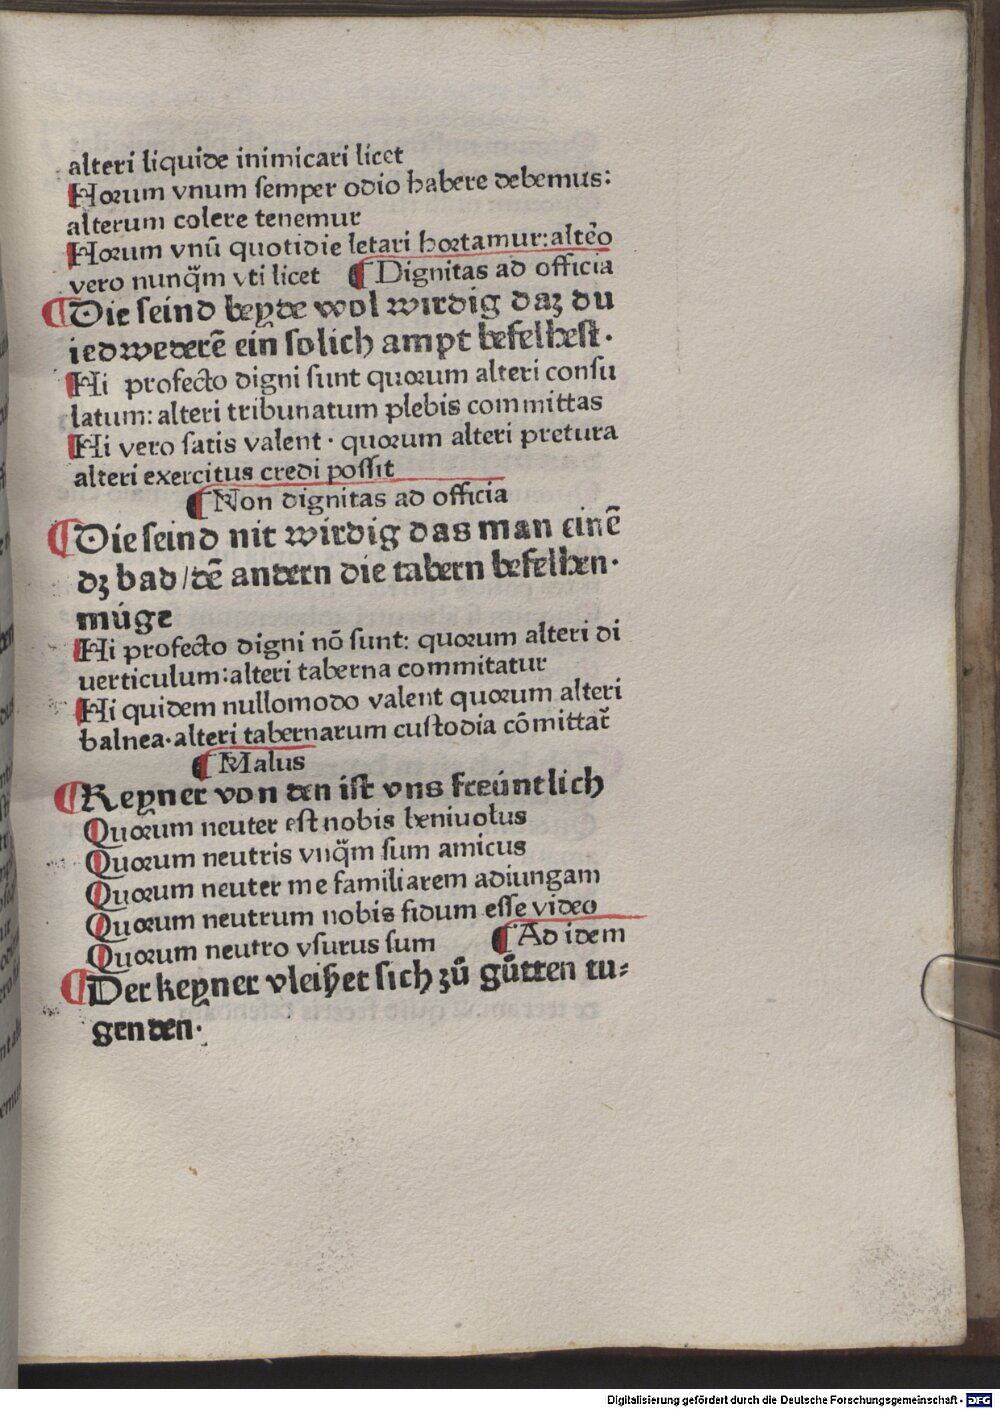 alteri liquide inimicari licet
Horum vnum semper odio habere debemus:
alterum colere tenemur
Horum vnū quotidie letari hortamur: alteō
vero nunq̃m vti licet ¶ Dignitas ad officia
¶ Die seind beyde wol wirdig daz du
iedwederē ein solich ampt befelhest.
Hi profecto digni sunt quorum alteri consu
latum: alteri tribunatum plebis committas
Hi vero satis valent · quorum alteri pretura
alteri exercitus credi possit
¶ Non dignitas ad officia
¶ Die seind nit wirdig das man einē
dz bad / dē andern die tabern befelhen·
müge
Hi profecto digni nō sunt: quorum alteri di
uerticulum: alteri taberna commitatur
Hi quidem nullomodo valent quorum alteri
balnea· alteri tabernarum custodia cōmittat᷑
¶ Malus
¶ Keyner von den ist vns freüntlich
Quorum neuter est nobis beniuolus
Quorum neutris vnq̃m sum amicus
Quorum neuter me familiarem adiungam
Quorum neutrum nobis fidum esse video
Quorum neutro vsurus sum ¶ Ad idem
¶ Der keyner vleißet sich zů gůtten tu⸗
genden·
Digitalisierung gefördert durch die Deutsche Forschungsgemeinschaft - DFG